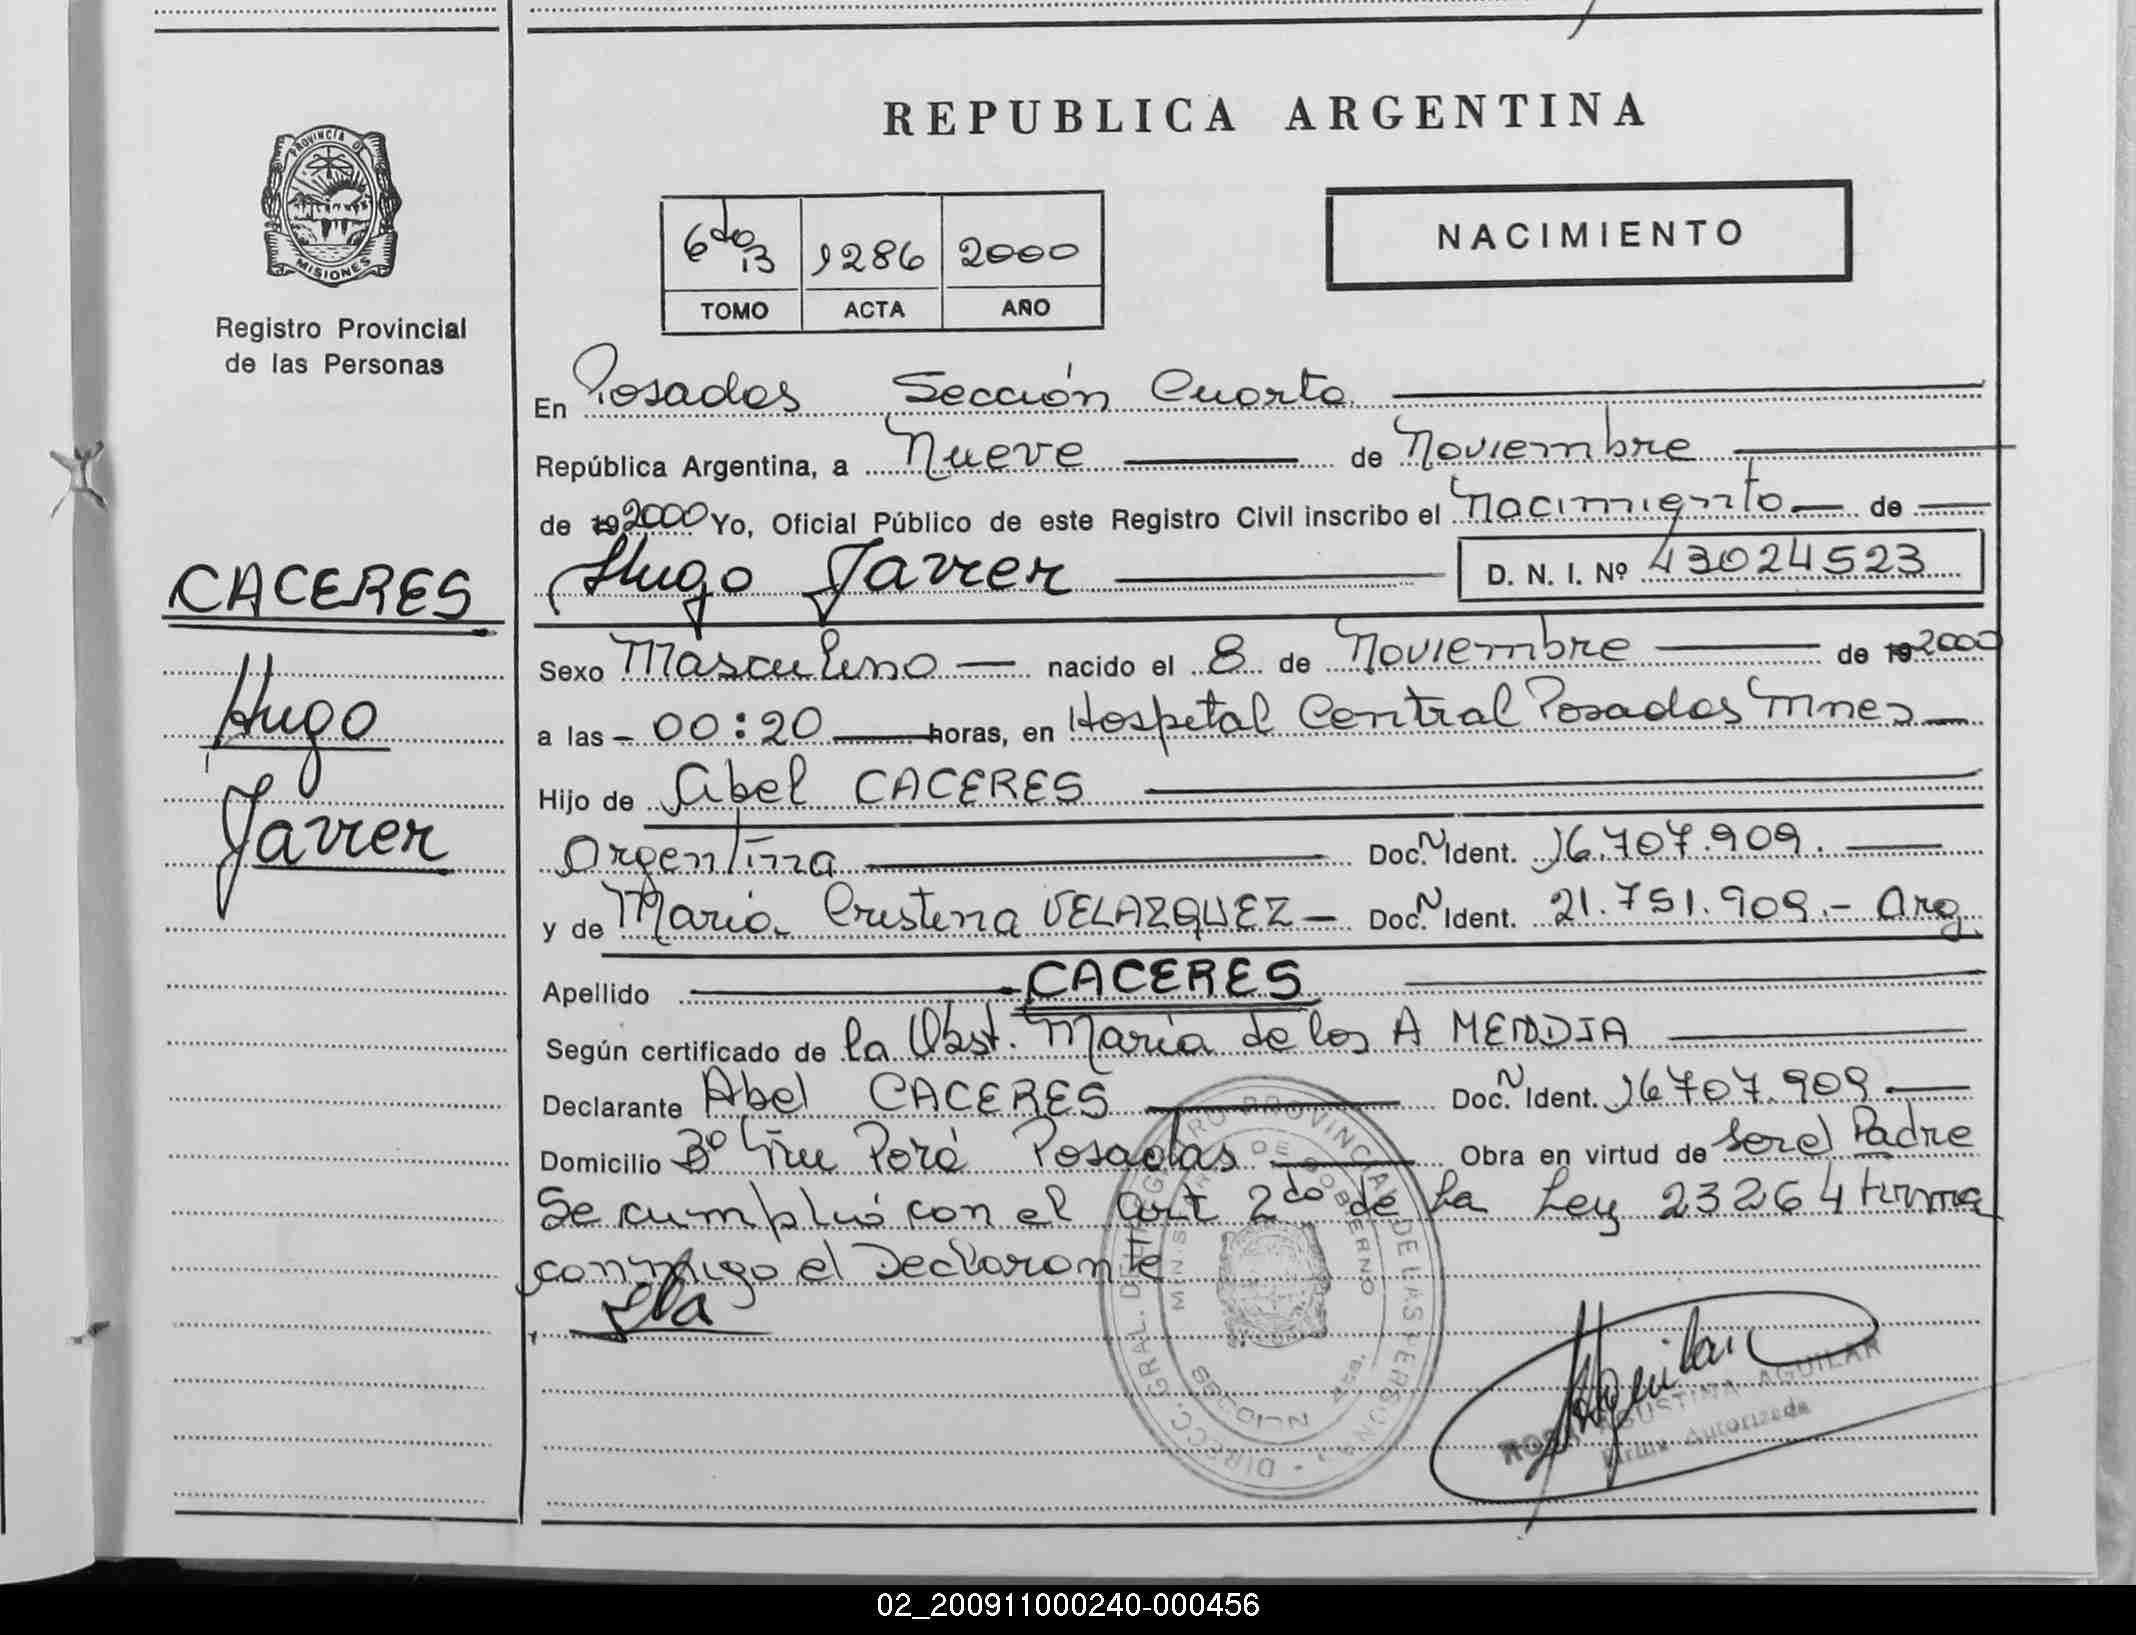 PROVINCIA DE
MISIONES
Registro Provincial
de las Personas
CACERES
Hugo
Javier
REPUBLICA ARGENTINA
1286 2000
TOMO ACTA AÑO
NACIMIENTO
En Posadas Sección Cuarta
República Argentina, a Nueve de Noviembre
de 19 2000 Yo, Oficial Público de este Registro Civil inscribo el Nacimiento de
Hugo Javier D. N. I. Nº 43024523
Sexo Masculino nacido el 8 de Noviembre de 19 2000
a las 00:20 horas, en Hospital Central Posadas Mnes
Hijo de Abel CACERES
Argentina Doc. N Ident. 16.707.909.
y de María Cristina VELAZQUEZ - Doc. N Ident. 21.751.909.- Arg.
Apellido CACERES
Según certificado de la Obst. María de los A MENDIA
Declarante Abel CACERES Doc. N Ident. 16.707.909
Domicilio Bº Ñu Porá Posadas Obra en virtud de ser el Padre
Se cumplió con el Art 2do de la Ley 23264 firma
conmigo el Declarante
DIRECC. GRAL. DEL REGISTRO PROVINCIAL DE LAS PERSONAS
MINISTERIO DE GOBIERNO
Aguilar
ROSA AGUSTINA AGUILAR
Autorizada
02_200911000240-000456